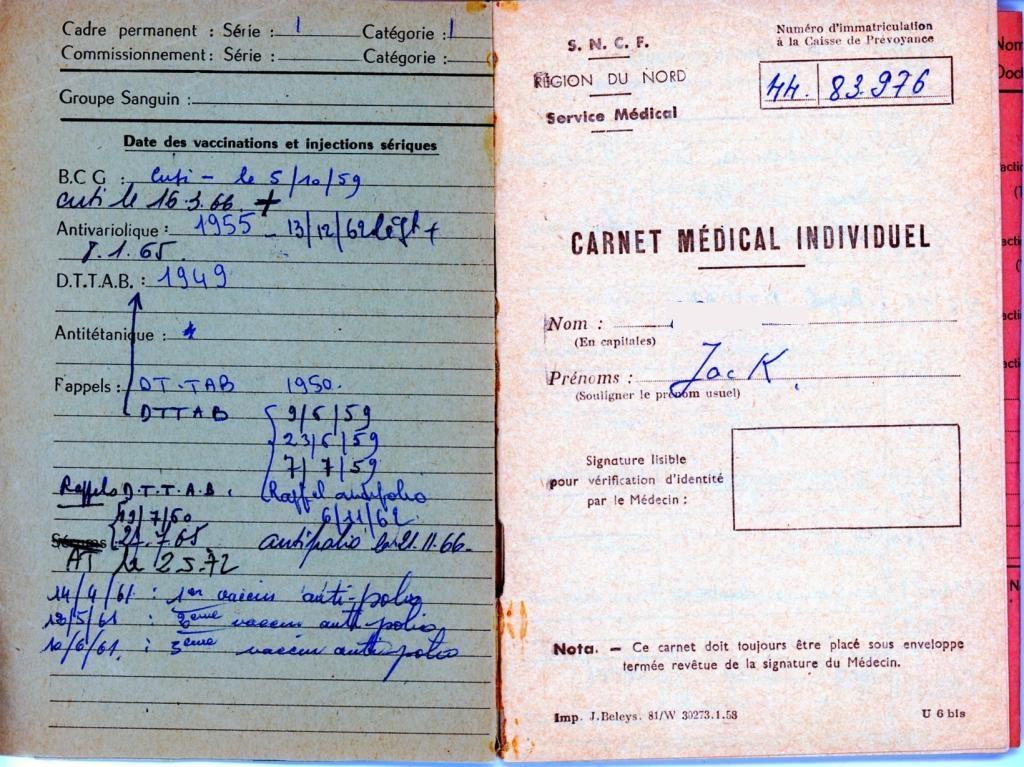 Cadre permanent : Série : 1 Catégorie : 1
Commissionnement : Série : Catégorie :
Groupe Sanguin :
Date des vaccinations et injections sériques
B.C G : Cuti – le 5/10/59
cuti le 16.3.66 +
Antivariolique : 1955 – 13/12/62 +
1.65
D.T.T.A.B. : 1949
Antitétanique :
Rappels : DT-TAB 1950.
DTTAB 9/6/59
23/6/59
7/7/59
Rappels D.T.T.A.B. Rappel antipolio
7/60 6/11/62
Sérums 7.65 antipolio le 21.11.66.
AT le 2.5.72
14/4/61 : 1er vaccin anti-polio
12/5/61 : 2ème vaccin antipolio
10/6/61. : 3ème vaccin antipolio
S. N. C. F.
RÉGION DU NORD
Service Médical
Numéro d'immatriculation
à la Caisse de Prévoyance
44. 83.976
CARNET MÉDICAL INDIVIDUEL
Nom :
(En capitales)
Prénoms : Jack
(Souligner le prénom usuel)
Signature lisible
pour vérification d'identité
par le Médecin :
Nota. – Ce carnet doit toujours être placé sous enveloppe
fermée revêtue de la signature du Médecin.
Imp. J.Beleys. 81/W 30273.1.58 U 6 bis
Nom
Doct